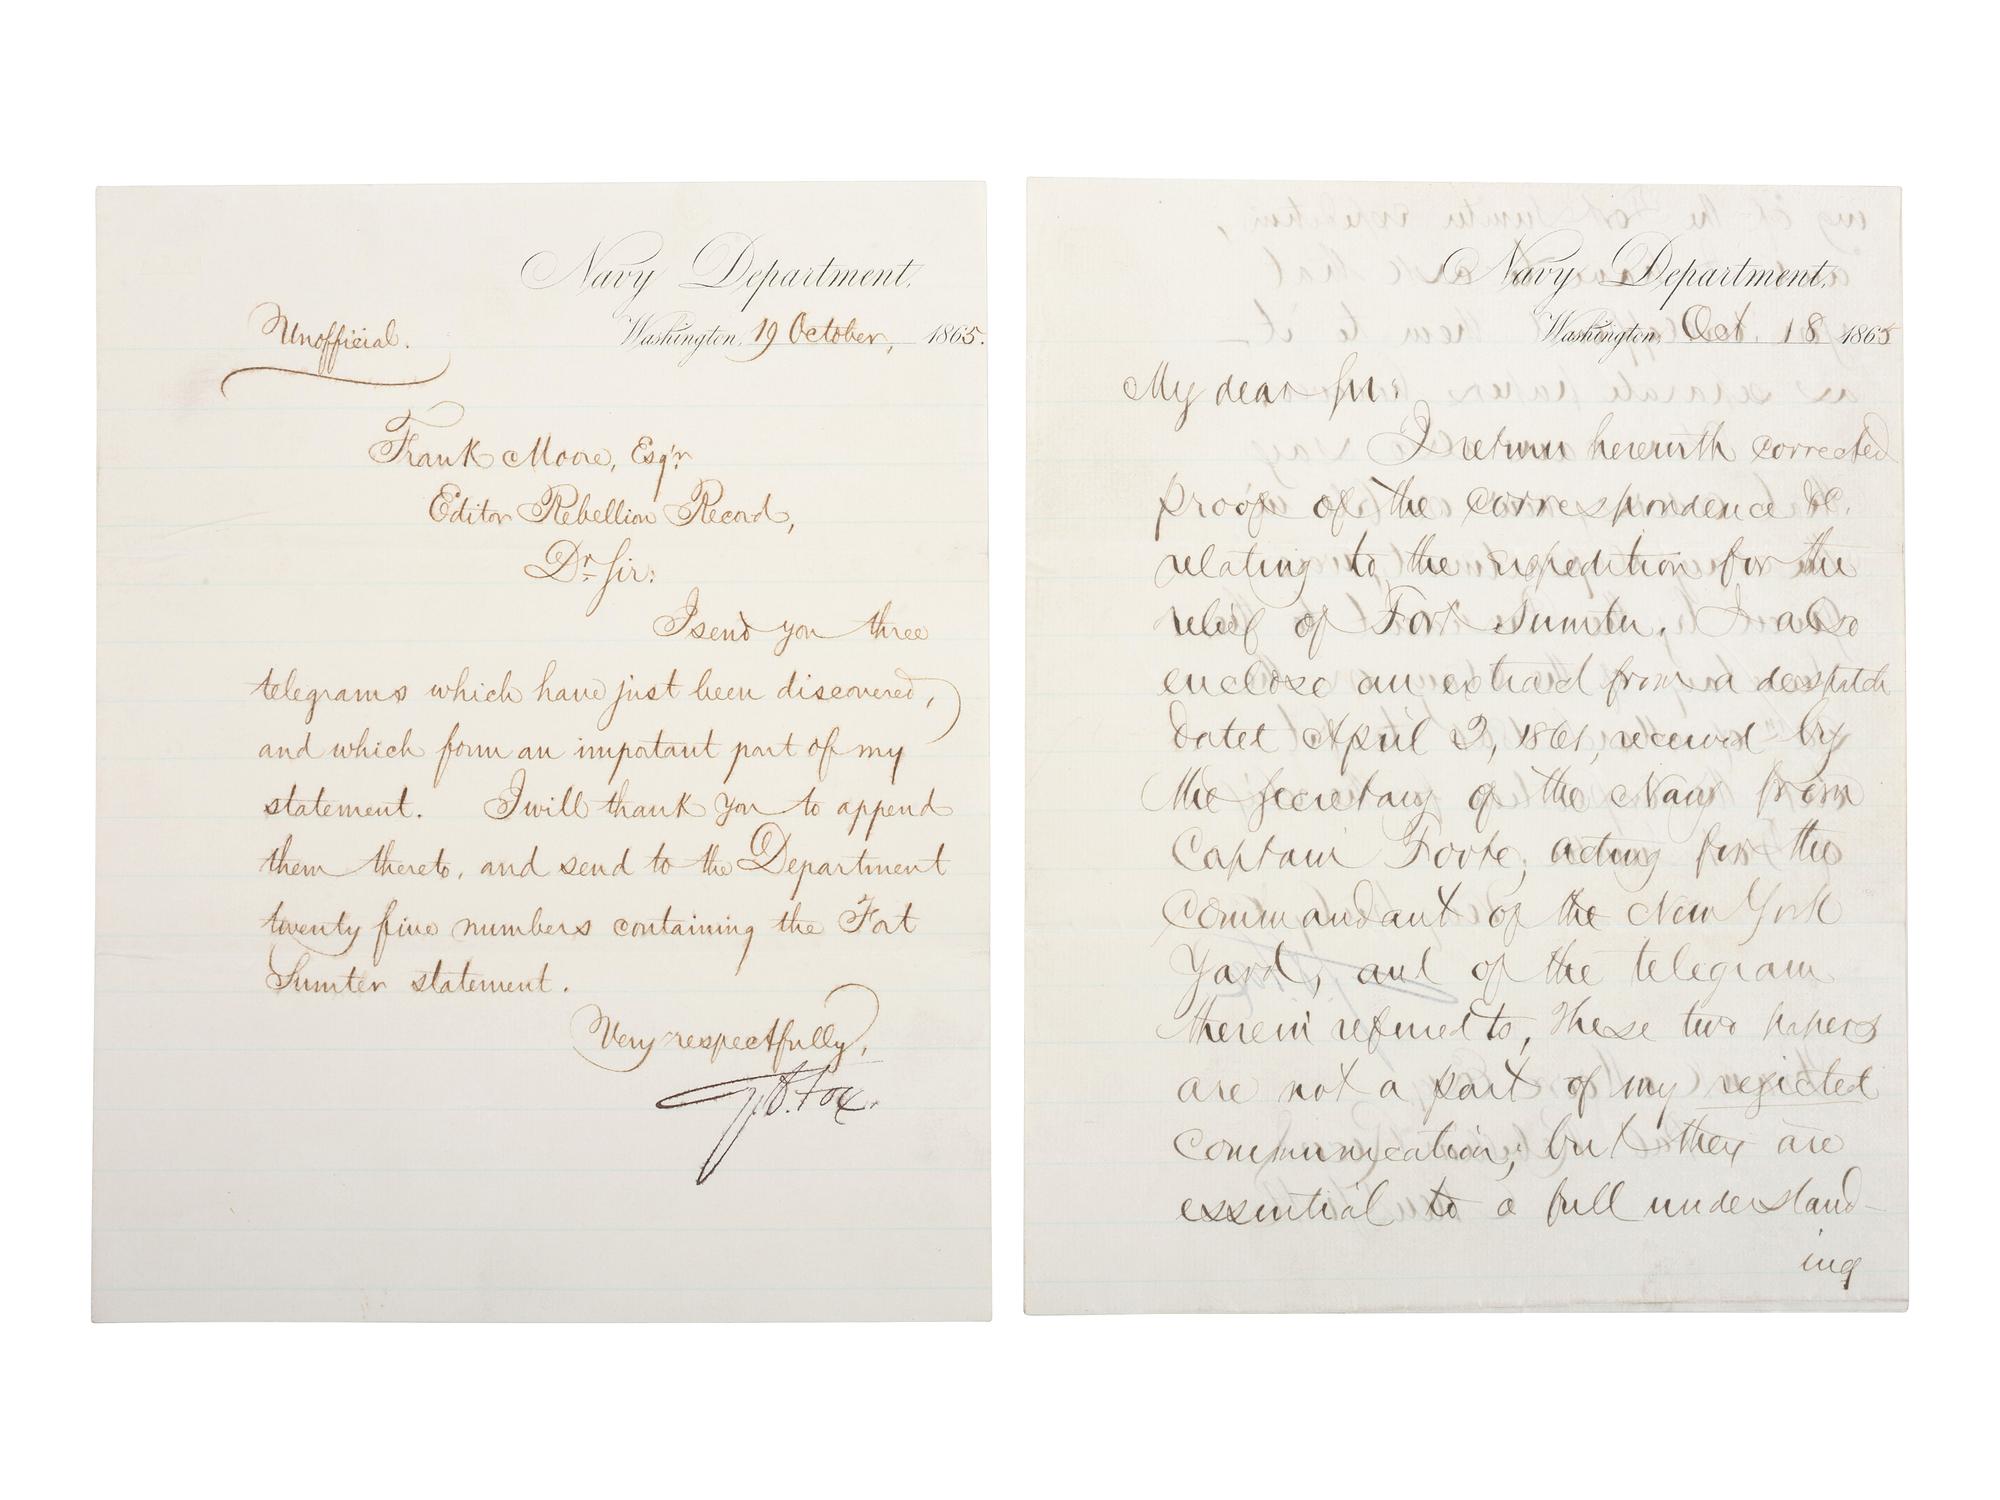 Navy Department,
Unofficial.
Washington, 19 October, 1865.
Frank Moore, Esq'r
Editor Rebellion Record,
Dr Sir:
I send you three
telegrams which have just been discovered,
and which form an important part of my
statement. I will thank you to append
them thereto, and send to the Department
twenty five numbers containing the Fort
Sumter statement.
Very respectfully,
G.V. Fox.
Navy Department,
Washington, Oct. 18 1865
My dear Sir:
I return herewith corrected
proof of the correspondence &c.
relating to the expedition for the
relief of Fort Sumter. I also
enclose an extract from a despatch
dated April 3, 1861, received by
the Secretary of the Navy from
Captain Foote, acting for the
Commandant of the New York
Yard, and of the telegram
therein referred to, These two papers
are not a part of my rejected
communication, but they are
essential to a full understand-
ing